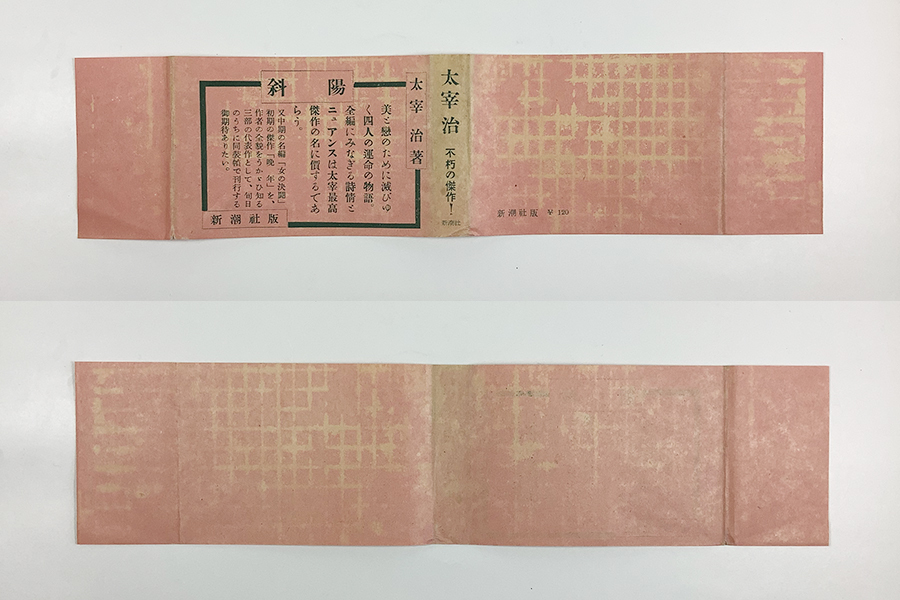 斜陽
太宰治著
美と戀のために滅びゆ
く四人の運命の物語。
全編にみなぎる詩情と
ニュアンスは太宰最高
傑作の名に價するであ
らう。
又中期の名編「女の決鬪」
初期の傑作「晩年」を、
作者の全貌をうかゞひ知る
三部の代表作として、旬日
のうちに同裝幀で刊行する
御期待ありたい。
新潮社版
太宰治 不朽の傑作!
新潮社
新潮社版 ¥120